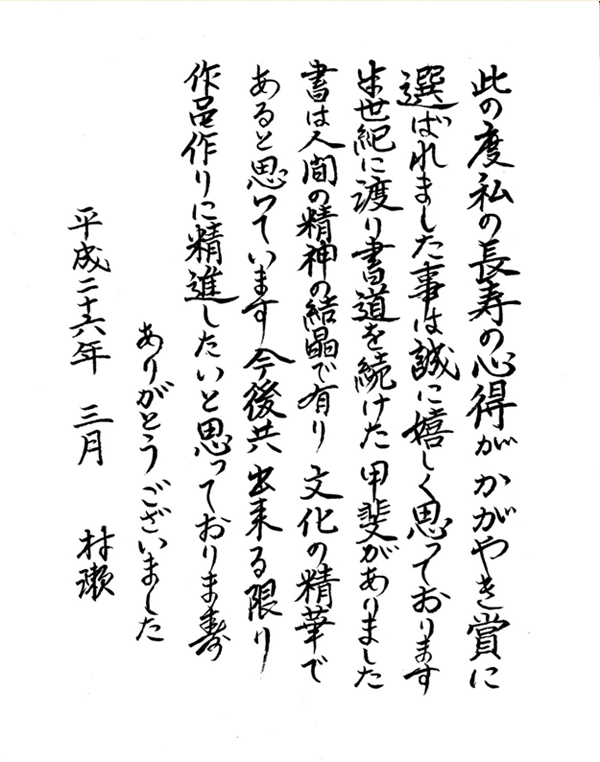 此の度私の長寿の心得がかがやき賞に
選ばれました事は誠に嬉しく思っております
半世紀に渡り書道を続けた甲斐がありました
書は人間の精神の結晶で有り 文化の精華で
あると思っています 今後共出来る限り
作品作りに精進したいと思っておりま寿
ありがとうございました
平成二十六年 三月 村瀬